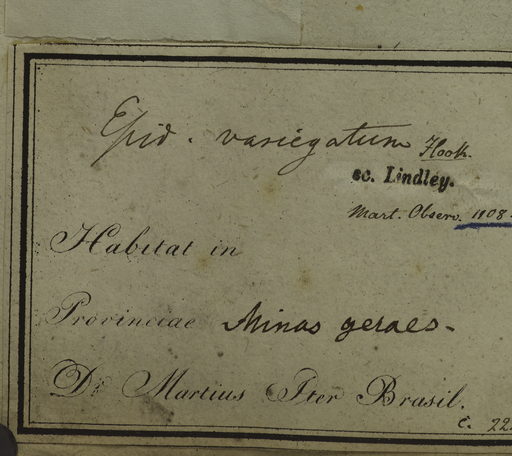 Epid. variegatum Hook.
sc. Lindley.
Mart. Observ. 1908.
Habitat in
Provinciae Minas geraes.
Dr. Martius Iter Brasil.
c. 222